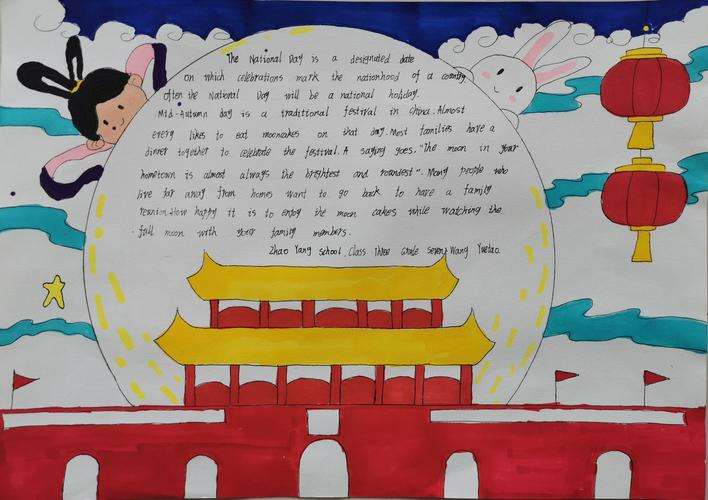 The National Day is a designated date
on which celebrations mark the nationhood of a country
often the National Day will be a national holiday.
Mid-Autumn day is a traditional festival in China. Almost
every likes to eat mooncakes on that day. Most families have a
dinner together to celebrate the festival. A saying goes, "The moon in your
hometown is almost always the brightest and roundest". Many people who
live far away from homes want to go back to have a family
reunion. How happy it is to enjoy the moon cakes while watching the
full moon with your family members.
Zhao Yang School Class Three Grade Seven Wang Yuetao